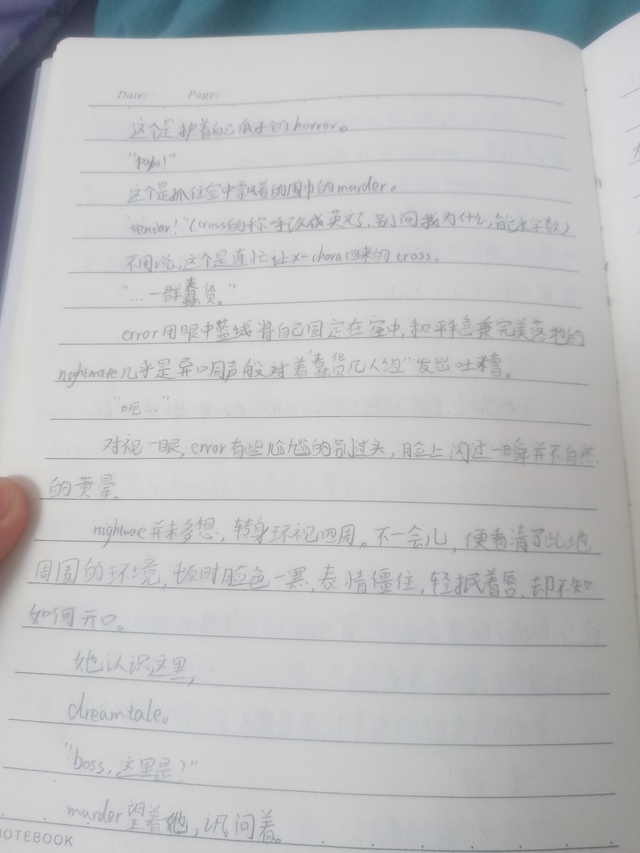 Date: Page:
这个是护着自己瓜子的horror。
"papa!"
这个是抓住空中飘着的围巾的murder。
senior!"(cross的称呼改成英文了,别问我为什么,能水字数)
不用说,这个是连忙让x-chara回来的cross。
"…一群蠢货。"
error用眼中蓝线将自己固定在空中,和平稳兼完美落地的
nightmare几乎是异口同声般对着"蠢货几人组"发出吐槽。
"呃…"
对视一眼,error有些尴尬的别过头,脸上闪过一瞬并不自然
的黄晕。
nightmare并未多想,转身环视四周。不一会儿,便看清了此地
周围的环境,顿时脸色一黑,表情僵住,轻抿着唇,却不知
如何开口。
她认识这里,
dreamtale。
"boss,这里是?"
murder望着她,问着。
NOTEBOOK